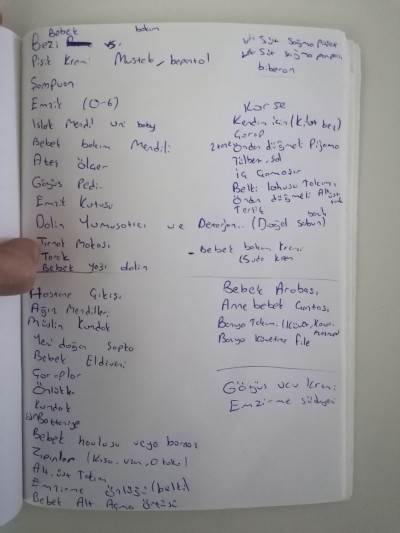 Bebek bakım
Bezi vs.
Pişik Kremi Mustela, bepantol
Şampuan
Emzik (0-6)
Islak Mendil uni baby
Bebek bakım Mendili
Ateş ölçer
Göğüs Pedi
Emzik Kutusu
Dalin Yumuşatıcı ve Deterjan.. (Doğal sabun)
Tırnak Makası
Tarak
Bebek yağı dalin
Hastane Çıkışı
Ağız Mendilleri
Müslin Kundak
Yeni doğan Şapka
Bebek Eldiveni
Çoraplar
Önlük
Kundak
Battaniye
Bebek havlusu veya bornoz
Zıbınlar (Kısa, uzun, 0 kol)
Alt, üst Takım
Emzirme Önlüğü (belki)
Bebek Alt Açma Örtüsü
Süt Sağma
Süt Sağma pompası
biberon
Korse
Kendim için (Külot bez)
Çorap
2 tane önden düğmeli Pijama
Tülbent, şal
İç Çamaşır
Belki lohusa Takımı
Önden düğmeli
Terlik
- Bebek bakım kremi
(Sudo krem
Bebek Arabası
Anne bebek Çantası
Banyo Takımı (Küvet,
Banyo Küvetine File
Göğüs ucu Kremi
Emzirme Sütyeni